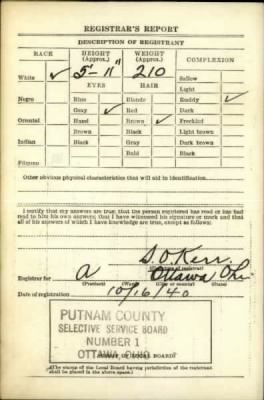 REGISTRAR'S REPORT
DESCRIPTION OF REGISTRANT
RACE
HEIGHT
(Approx.)
WEIGHT
(Approx.)
COMPLEXION
White ✓
5'-11"
210
Sallow
Light
EYES
HAIR
Negro
Blue
Blonde
Ruddy ✓
Gray ✓
Red
Dark
Oriental
Hazel
Brown ✓
Freckled
Brown
Black
Light brown
Indian
Black
Gray
Dark brown
Bald
Black
Filipino
Other obvious physical characteristics that will aid in identification
I certify that my answers are true; that the person registered has read or has had
read to him his own answers; that I have witnessed his signature or mark and that
all of his answers of which I have knowledge are true, except as follows:
S. O. Kerr
(Signature of registrar)
Registrar for A Ottawa Ohio
(Precinct) (Ward) (City or county) (State)
Date of registration 10/16/40
PUTNAM COUNTY
SELECTIVE SERVICE BOARD
NUMBER 1
OTTAWA, OHIO
(STAMP OF LOCAL BOARD)
(The stamp of the Local Board having jurisdiction of the registrant
shall be placed in the above space.)